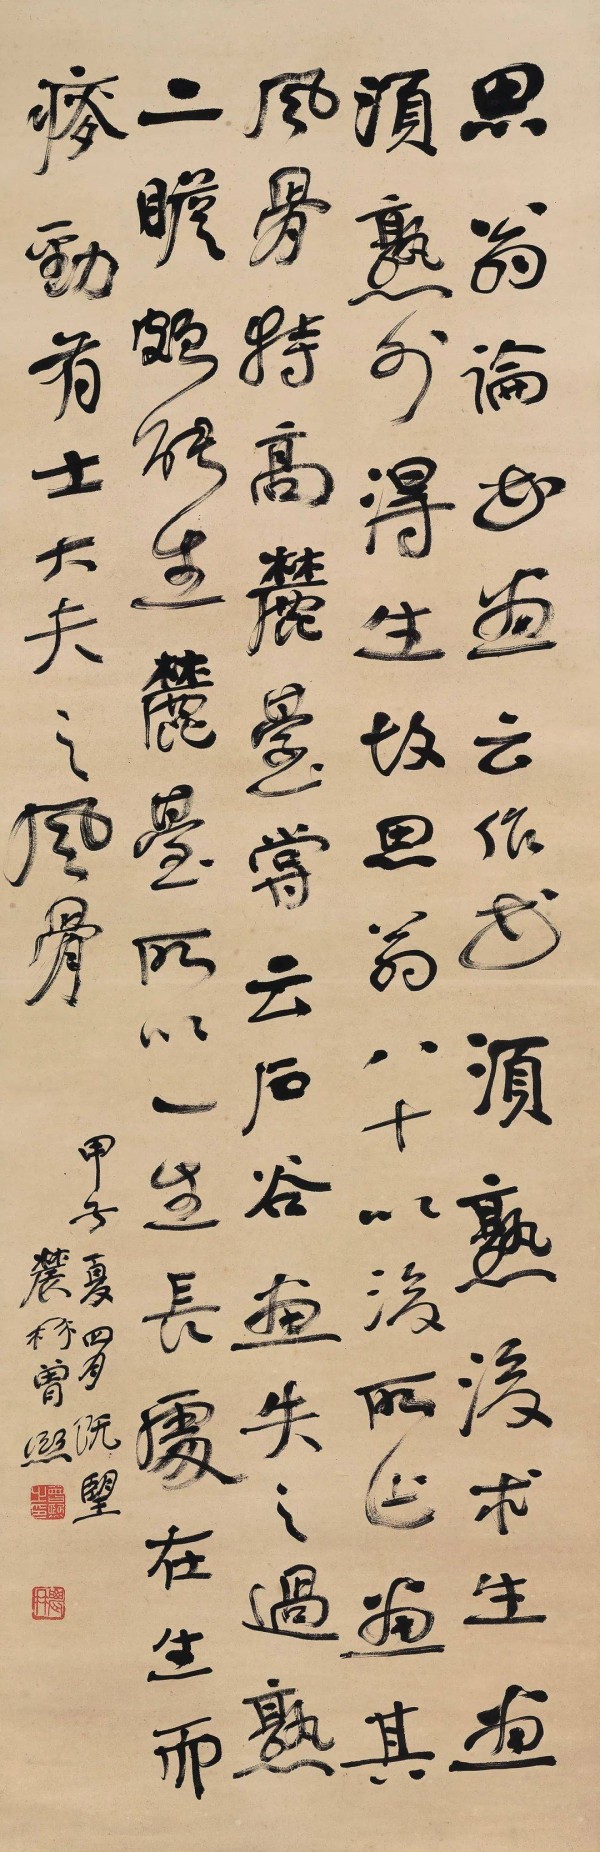 思翁論書畫云作書須熟後求生畫
須熟外得生故思翁八十以後所作畫其
風骨特高麓臺嘗云石谷畫失之過熟
二瞻頗能生麓臺所以一生長處在生而
痠勁有士大夫之風骨
甲子夏四月既望
農髯曾熙